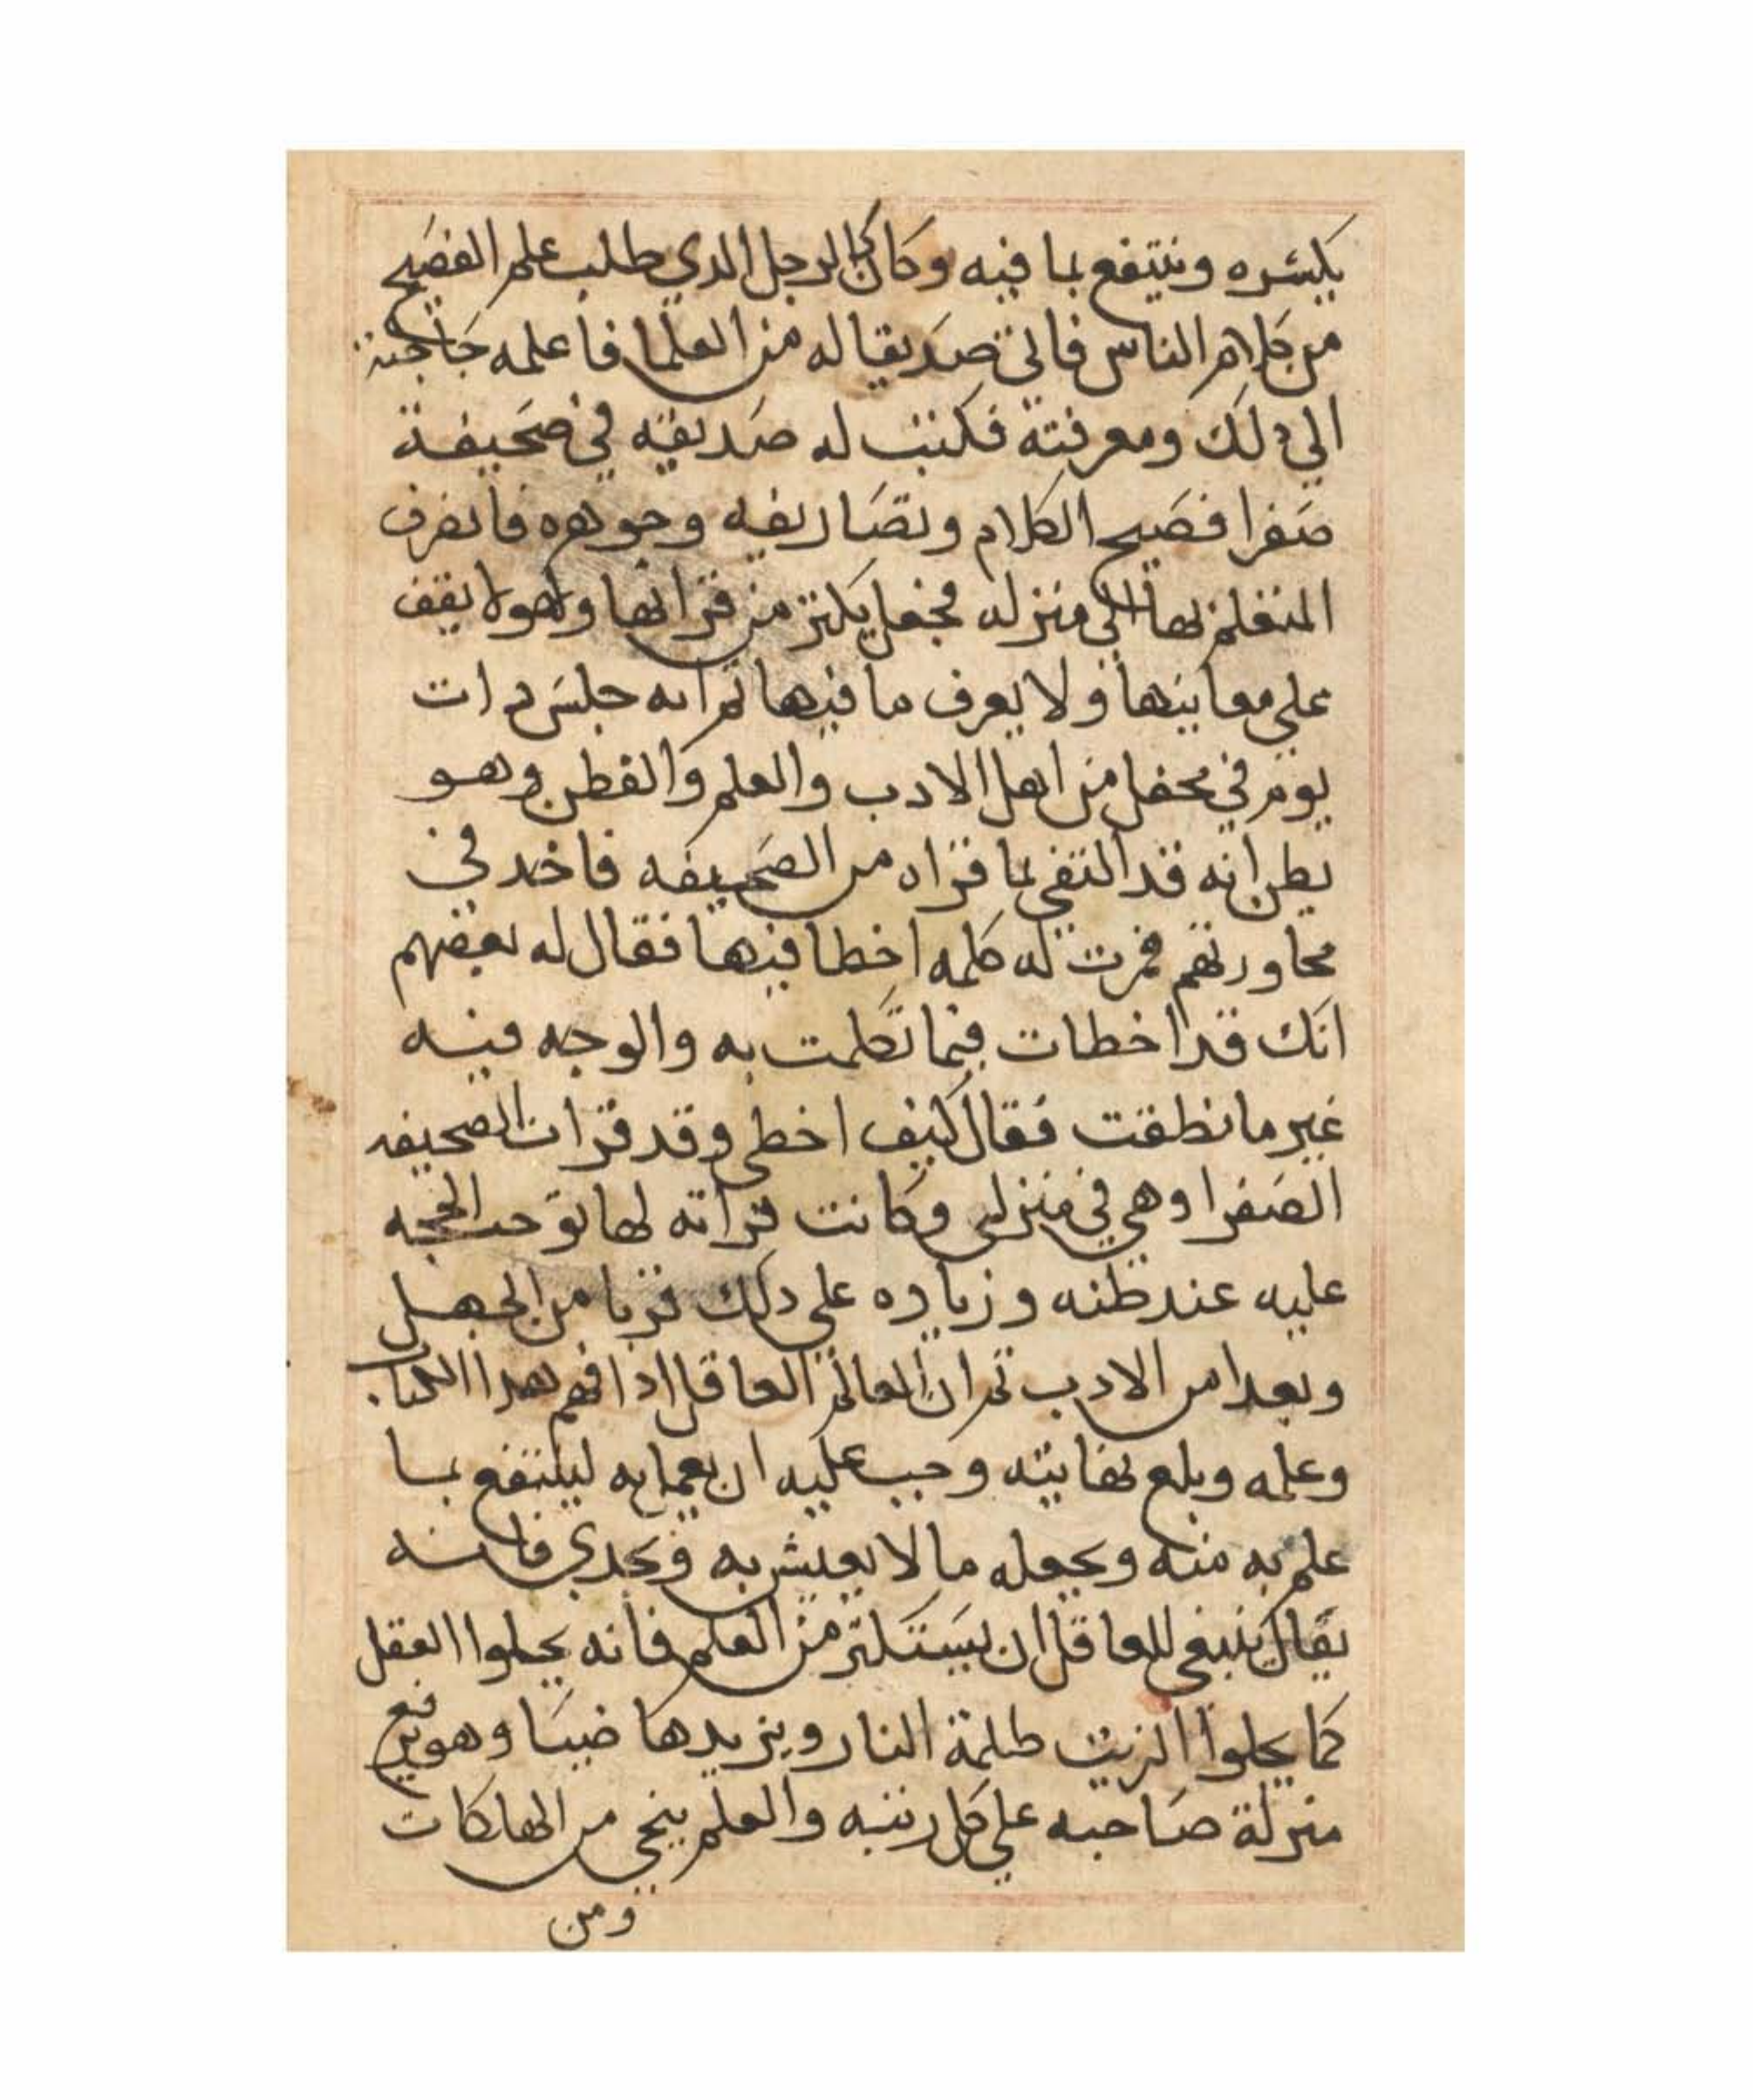 يكسره وينتفع بما فيه وكان كالرجل الدي طلب علم الفصيح
من كلام الناس فاتي صديقا له من العلما فاعلمه حاجته
الي دلك ومعرفته فكتب له صديقه في صحيفة
صفرا فصيح الكلام وتصاريفه وجوهره فانصرف
المتعلم بها الي منزله فجعل يكتر من قراتها وهو لا يقف
علي معاينها ولا يعرف ما فيها تم انه جلس دات
يوم في محفل من اهل الادب والعلم والفطن وهو
يطن انه قد اكتفي بما قراه من الصحيفه فاخد في
محاورتهم فمرت له كلمه اخطا فيها فقال له بعضهم
انك قد اخطات فيما تكلمت به والوجه فيه
غير ما نطقت فقال كيف اخطي وقد قرات الصحيفه
الصفرا وهي في منزلي وكانت قراته لها توجب الحجه
عليه عند ظنه وزياده علي دلك قربا من الجهل
وبعدا من الادب تم ان العالم العاقل ادا فهم هدا الكتاب
وعلمه وبلغ نهايته وجب عليه ان يعمل به لينتفع بما
علم به منه ويجعله مالا يعيش به ويحدي فانه
يقال ينبغي للعاقل ان يستكتر من العلم فانه يجلوا العقل
كما يجلوا الزيت طلمة النار ويزيدها ضيا وهو يرفع
منزلة صاحبه علي كل رتبه والعلم ينجي من الهلكات
ومن